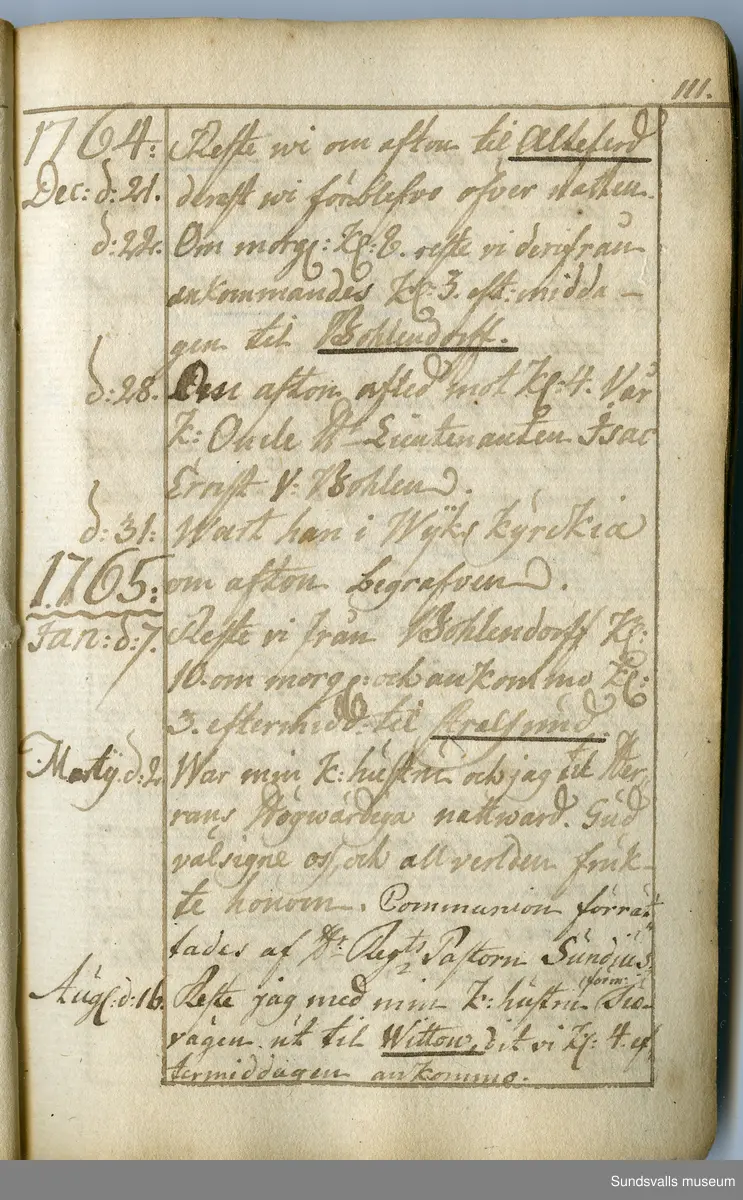 111.
1764: Reste wi om afton til Altefehrd
Dec: d: 21. derest wi förblefvo öfver natten.
d: 22. Om morg: Kl: 8. reste vi derifrån
ankommandes Kl: 3. eft: midda-
gen til Bohlendorff.
d: 28. Om afton afled mot Kl: 4. Vår
K: Oncle Hr Lieutenanten Isac
Ernst V: Bohlen.
d: 31: Wart han i Wÿks kÿrckia
1765: om afton begrafven.
Jan: d: 7. Reste vi från Bohlendorff Kl:
10. om morg: och ankommo Kl:
3. eftermidd: til Stralsund.
Martÿ. d: 2. War min K: hustru och jag til Her-
rans Högwärdiga nattward. Gud
välsigne oss, och all verlden fruk-
te honom. Communion förrät-
tades af Hr Regts Pastorn Sundius.
Aug: d: 16. Reste jag med min K: hustru (form: Sio-
vägen ut til Wittow, dit vi Kl: 4. ef-
termiddagen ankommo.
Sundsvalls museum